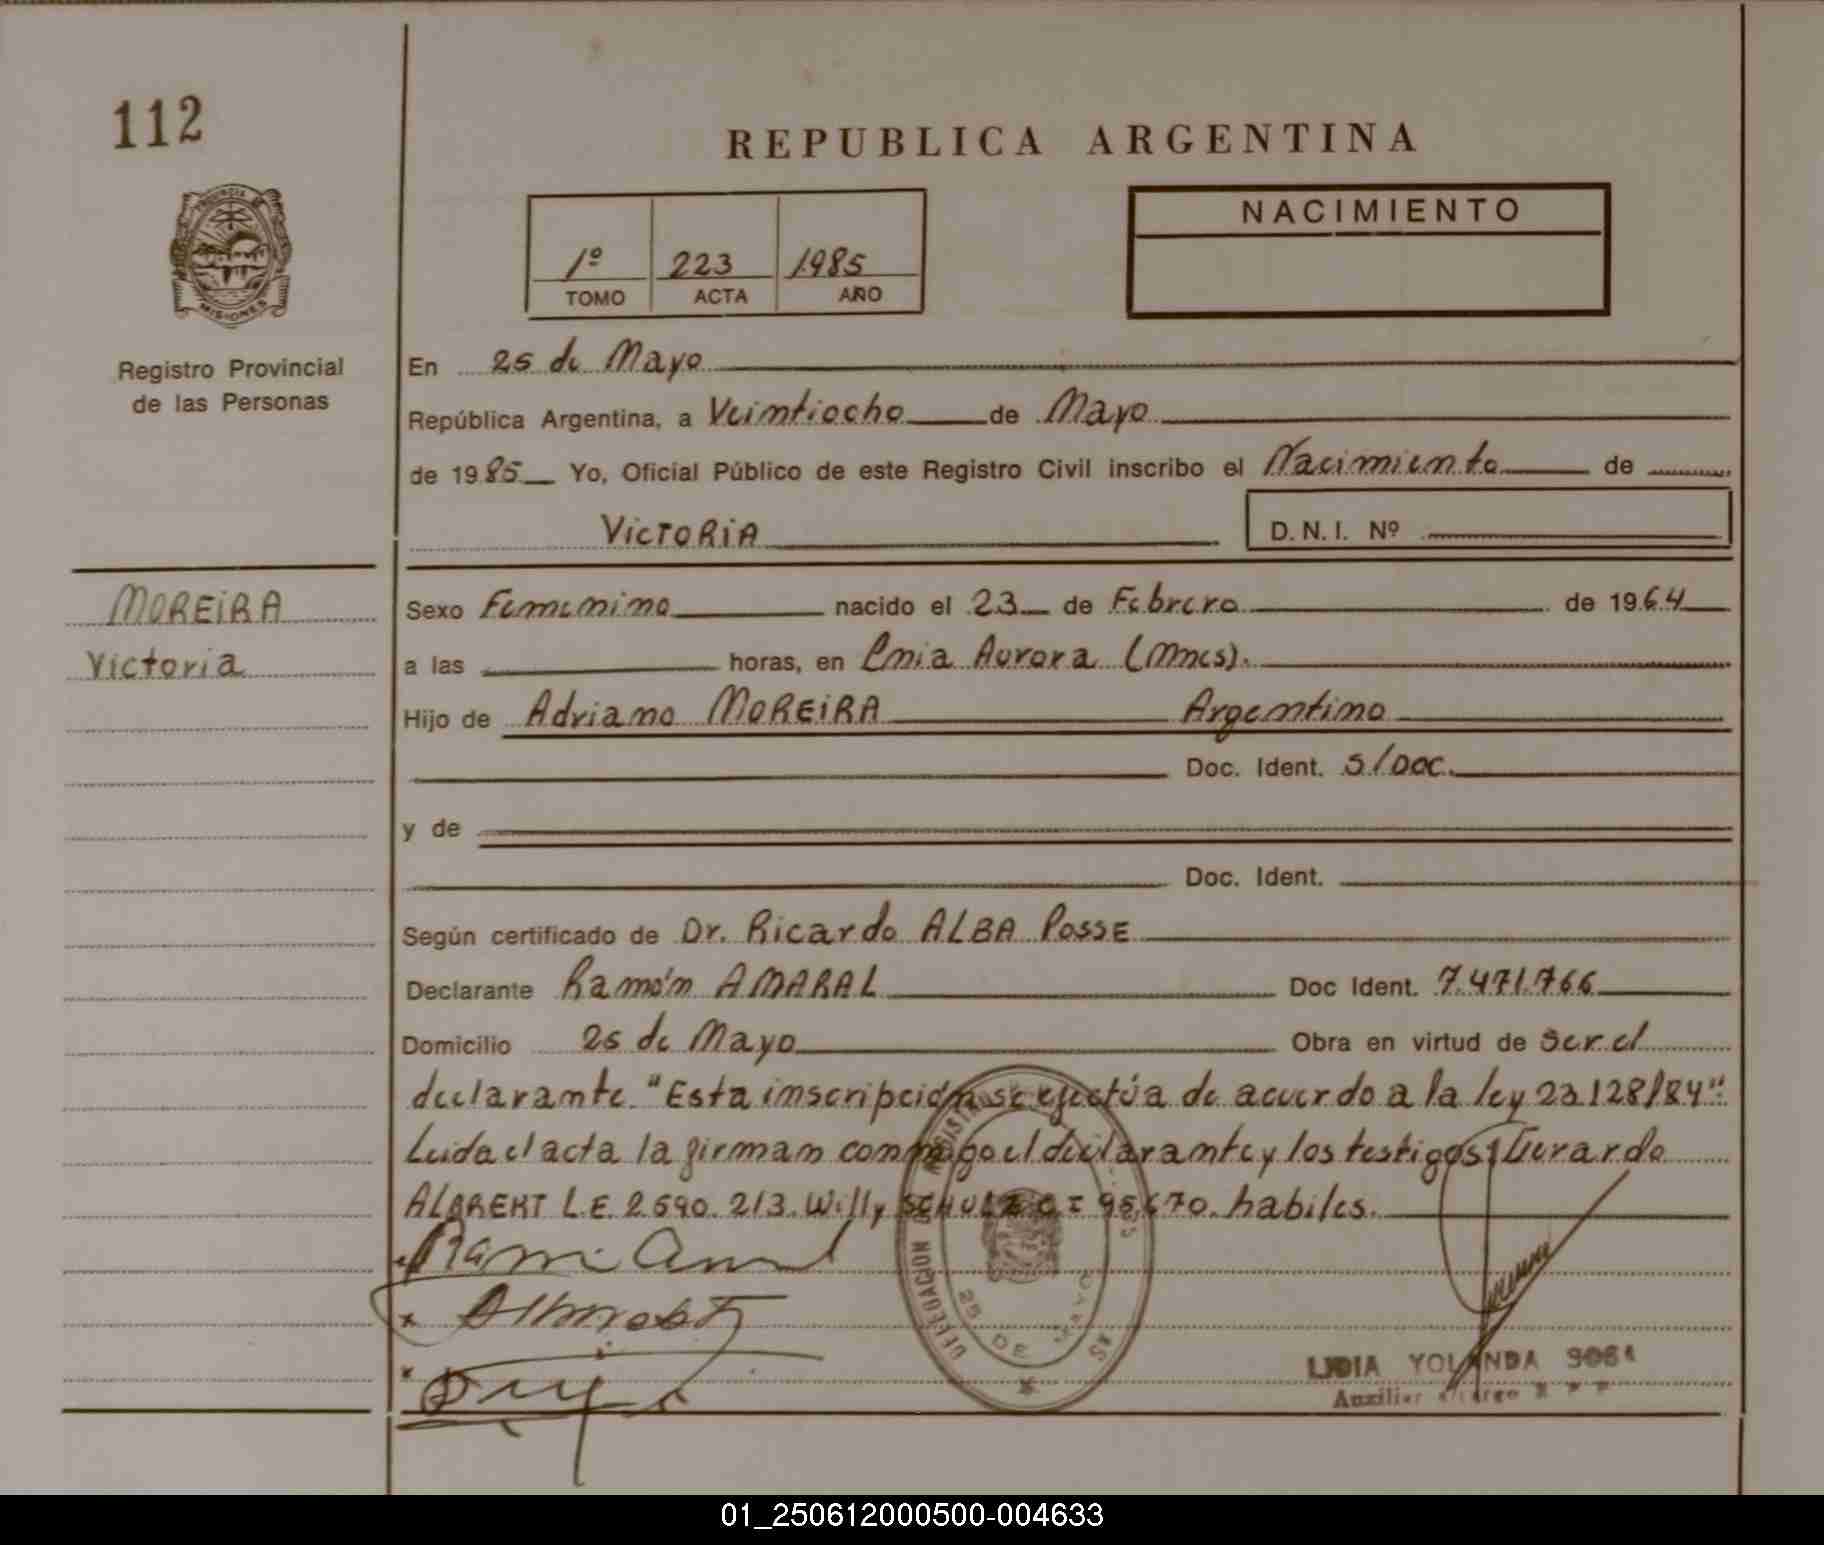 112
REPUBLICA ARGENTINA
PROVINCIA DE
MISIONES
1º 223 1985
TOMO ACTA AÑO
NACIMIENTO
Registro Provincial
de las Personas
En 25 de Mayo
República Argentina, a Veintiocho de Mayo
de 1985 Yo, Oficial Público de este Registro Civil inscribo el Nacimiento de
VICTORIA D.N.I. Nº
MOREIRA
Victoria
Sexo Femenino nacido el 23 de Febrero de 1964
a las horas, en Cnia Aurora (Mnes).
Hijo de Adriano MOREIRA Argentino
Doc. Ident. S/DOC.
y de
Doc. Ident.
Según certificado de Dr. Ricardo ALBA POSSE
Declarante Ramón AMARAL Doc Ident. 7.471.766
Domicilio 25 de Mayo Obra en virtud de Ser el
declarante. "Esta inscripción se efectúa de acuerdo a la ley 23128/84".
Leida el acta la firman conmigo el declarante y los testigos Gerardo
L.E. 2.590.213. Willy SCHULZ habiles.
DELEGACION
25 DE MAYO
LIDIA YOLANDA
Auxiliar
01_250612000500-004633